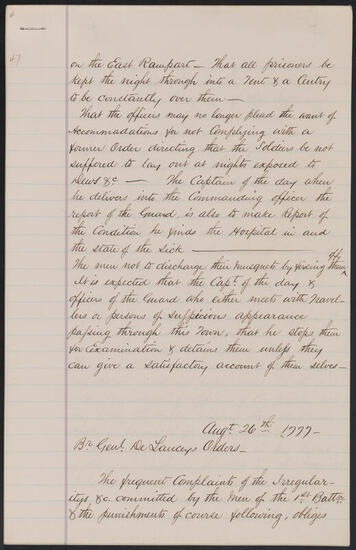 47
on the East Rampart — That all prisoners be
kept the night through into a Tent & a Centry
to be constantly over them —
That the officers may no longer plead the want of
Accommadations for not Complying with a
former Order directing that the Soldiers be not
suffered to lay out at nights exposed to
Dews &c — The Captain of the day when
he delivers into the Commanding officer the
report of the Guard, is also to make Report of
the Condition he finds the Hospital in and
the state of the Sick —
The men not to discharge their musquets by fireing them
It is expected that the Capt. of the day &
officers of the Guard who either meets with Travel-
lers or persons of Suspicion appearance
passing through this Town, that he stops them
for Examination & detains them unless they
can give a satisfactory account of them selves —
Augt. 26th 1777 —
Br. Genl. De Lanceys Orders —
The frequent Complaints of the Irregular-
itys &c committed by the Men of the 1st Battn.
& the punishments of course following, obliges